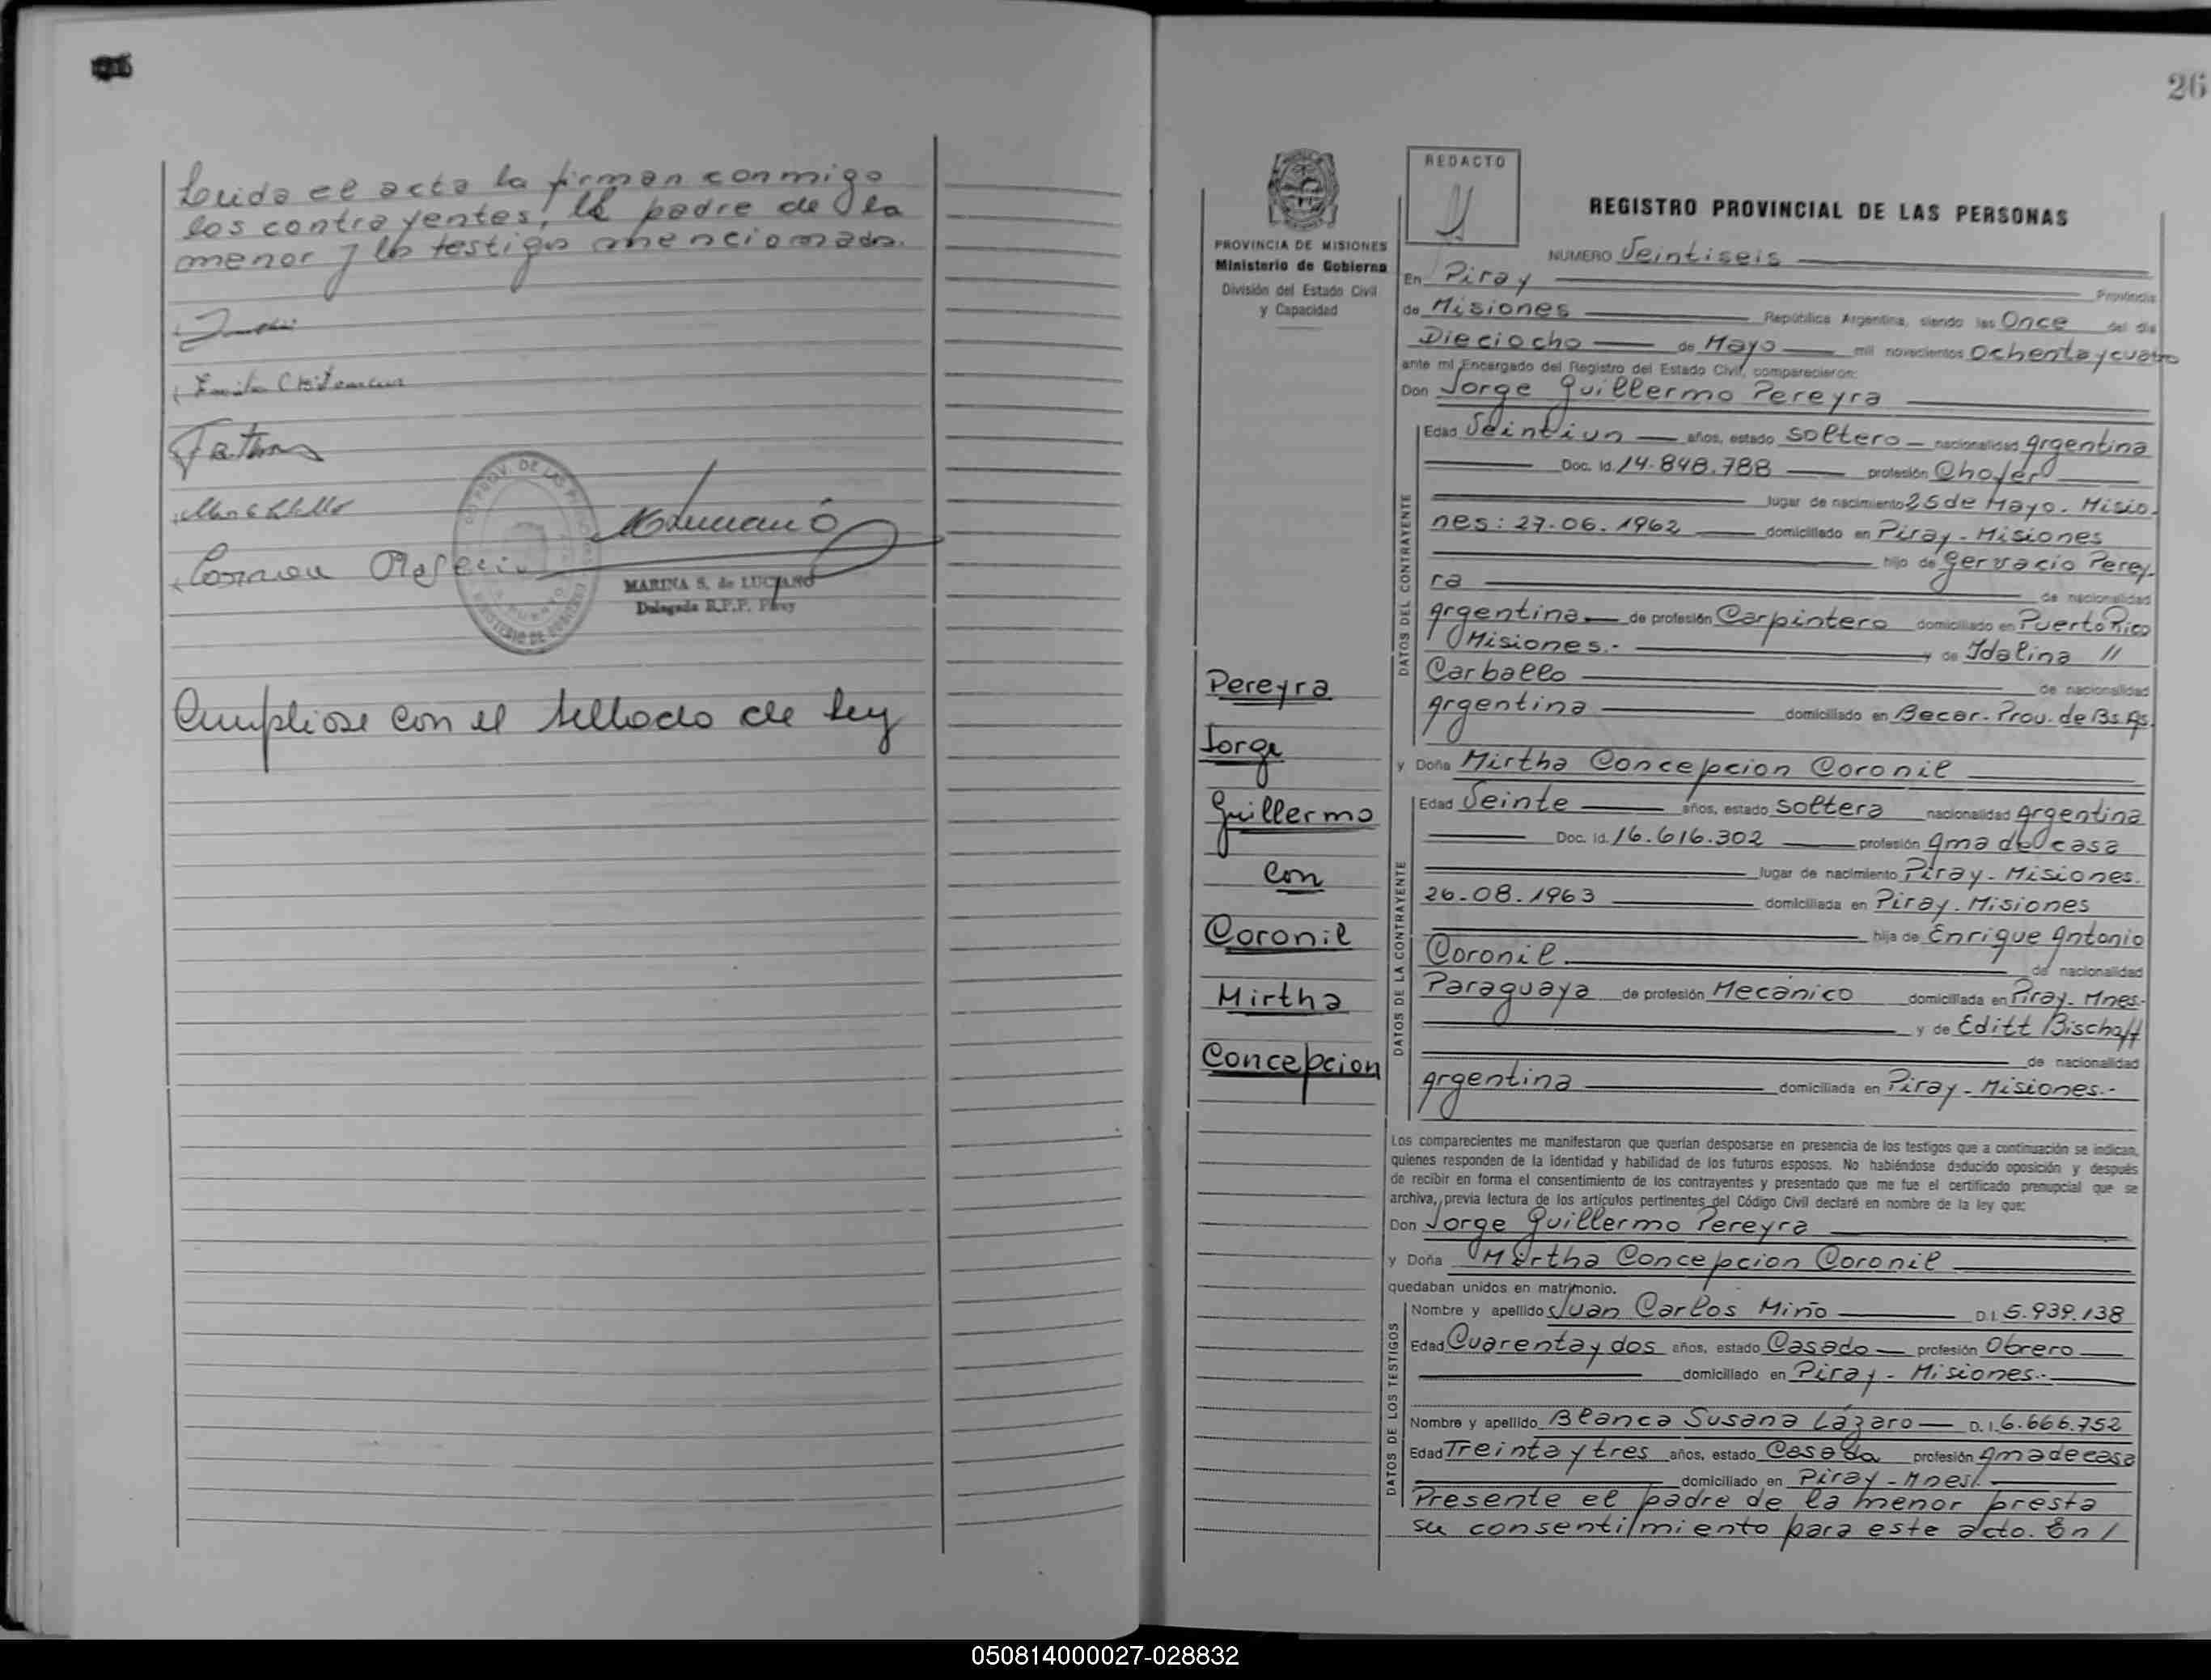 Leida el acta la firman conmigo
los contrayentes, el padre de la
menor y los testigos mencionados.
MARINA S. de LUCIANO
Delegada R.P.P. Piray
Cumpliose con el sellado de ley
26
REDACTO
PROVINCIA DE MISIONES
Ministerio de Gobierno
División del Estado Civil
y Capacidad
Pereyra
Jorge
Guillermo
con
Coronil
Mirtha
Concepcion
REGISTRO PROVINCIAL DE LAS PERSONAS
NUMERO Veintiseis
En Piray Provincia
de Misiones República Argentina, siendo las Once del día
Dieciocho de Mayo mil novecientos Ochenta y cuatro
ante mí Encargado del Registro del Estado Civil, comparecieron:
Don Jorge Guillermo Pereyra
DATOS DEL CONTRAYENTE
Edad Veintiun años, estado soltero nacionalidad Argentina
Doc. Id. 14.848.788 profesión Chofer
lugar de nacimiento 25 de Mayo. Misio-
nes: 27.06.1962 domiciliado en Piray - Misiones
hijo de Gervacio Perey-
ra de nacionalidad
Argentina de profesión Carpintero domiciliado en Puerto Rico
Misiones.- y de Idalina //
Carballo de nacionalidad
Argentina domiciliado en Becar. Prov. de Bs. As.
y Doña Mirtha Concepcion Coronil
DATOS DE LA CONTRAYENTE
Edad Veinte años, estado soltera nacionalidad Argentina
Doc. Id. 16.616.302 profesión Ama de casa
lugar de nacimiento Piray - Misiones.
26-08.1963 domiciliada en Piray. Misiones
hija de Enrique Antonio
Coronil. de nacionalidad
Paraguaya de profesión Mecánico domiciliada en Piray - Mnes.-
y de Editt Bischoff
de nacionalidad
Argentina domiciliada en Piray - Misiones.-
Los comparecientes me manifestaron que querían desposarse en presencia de los testigos que a continuación se indican,
quienes responden de la identidad y habilidad de los futuros esposos. No habiéndose deducido oposición y después
de recibir en forma el consentimiento de los contrayentes y presentado que me fue el certificado prenupcial que se
archiva, previa lectura de los artículos pertinentes del Código Civil declaré en nombre de la ley que:
Don Jorge Guillermo Pereyra
y Doña Mirtha Concepcion Coronil
quedaban unidos en matrimonio.
DATOS DE LOS TESTIGOS
Nombre y apellido Juan Carlos Miño D.I. 5.939.138
Edad Cuarenta y dos años, estado Casado profesión Obrero
domiciliado en Piray - Misiones.-
Nombre y apellido Blanca Susana Lázaro D.I. 6.666.752
Edad Treinta y tres años, estado Casada profesión Ama de casa
domiciliado en Piray - Mnes/.
Presente el padre de la menor presta
su consentimiento para este acto. En /
050814000027-028832